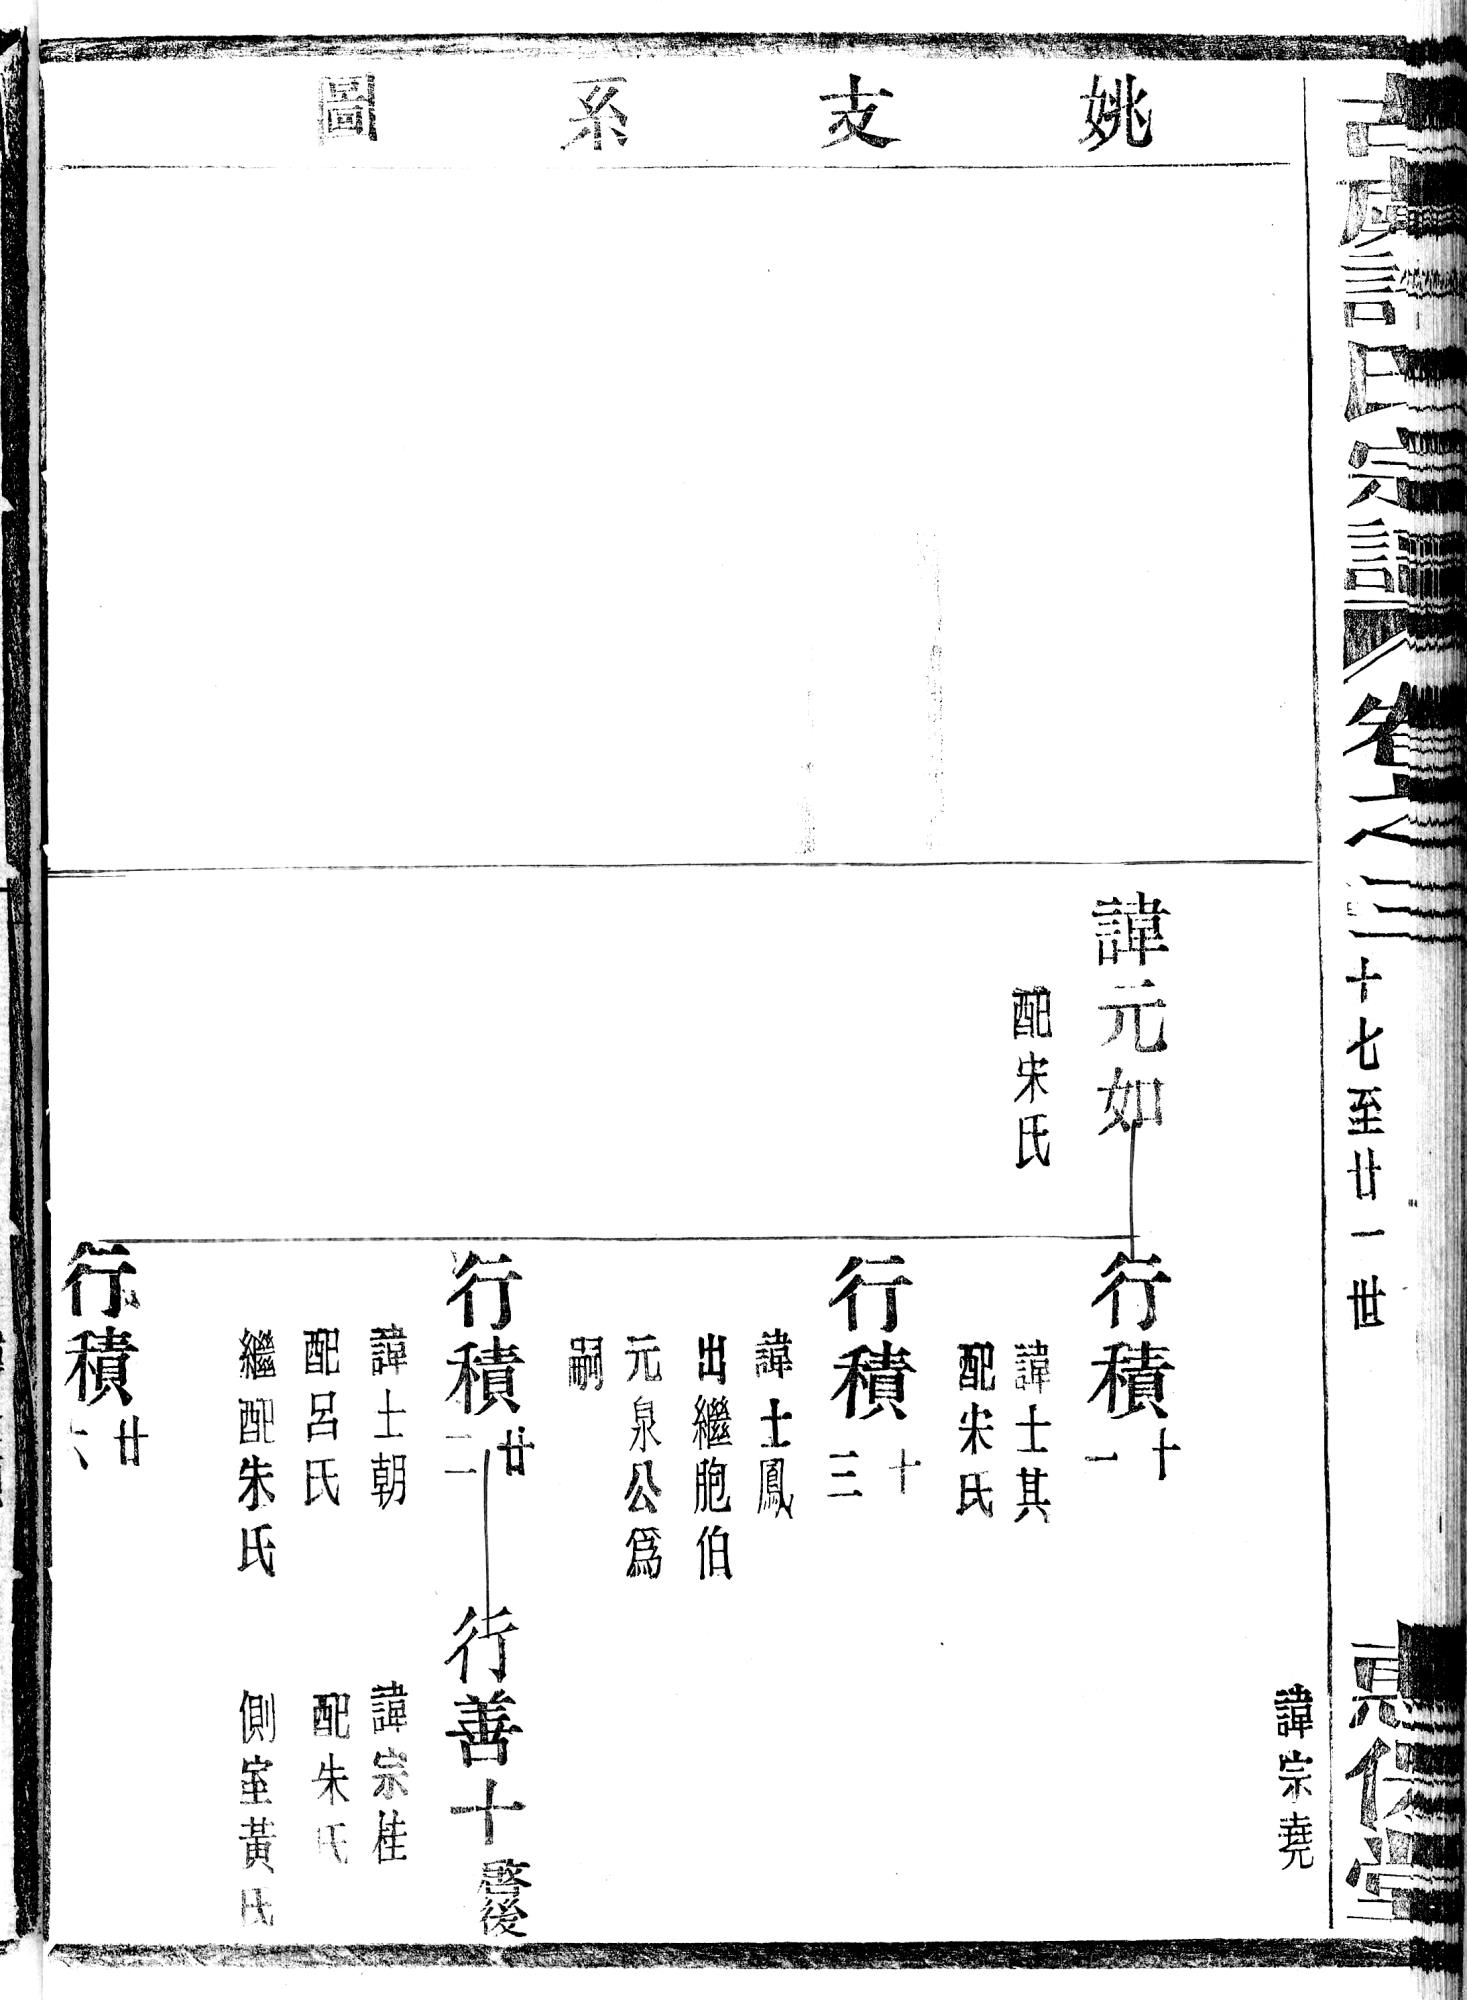 古虞許氏宗譜
卷之三
十七至廿一世
惇倫堂
姚支系圖
諱宗堯
諱元如
配宋氏
行積十一
諱士其
配宋氏
行積十三
諱士鳳
出繼胞伯
元泉公爲
嗣
行積廿二
諱士朝
配呂氏
繼配朱氏
行善十
啓後
諱宗桂
配朱氏
側室黃氏
行積廿六